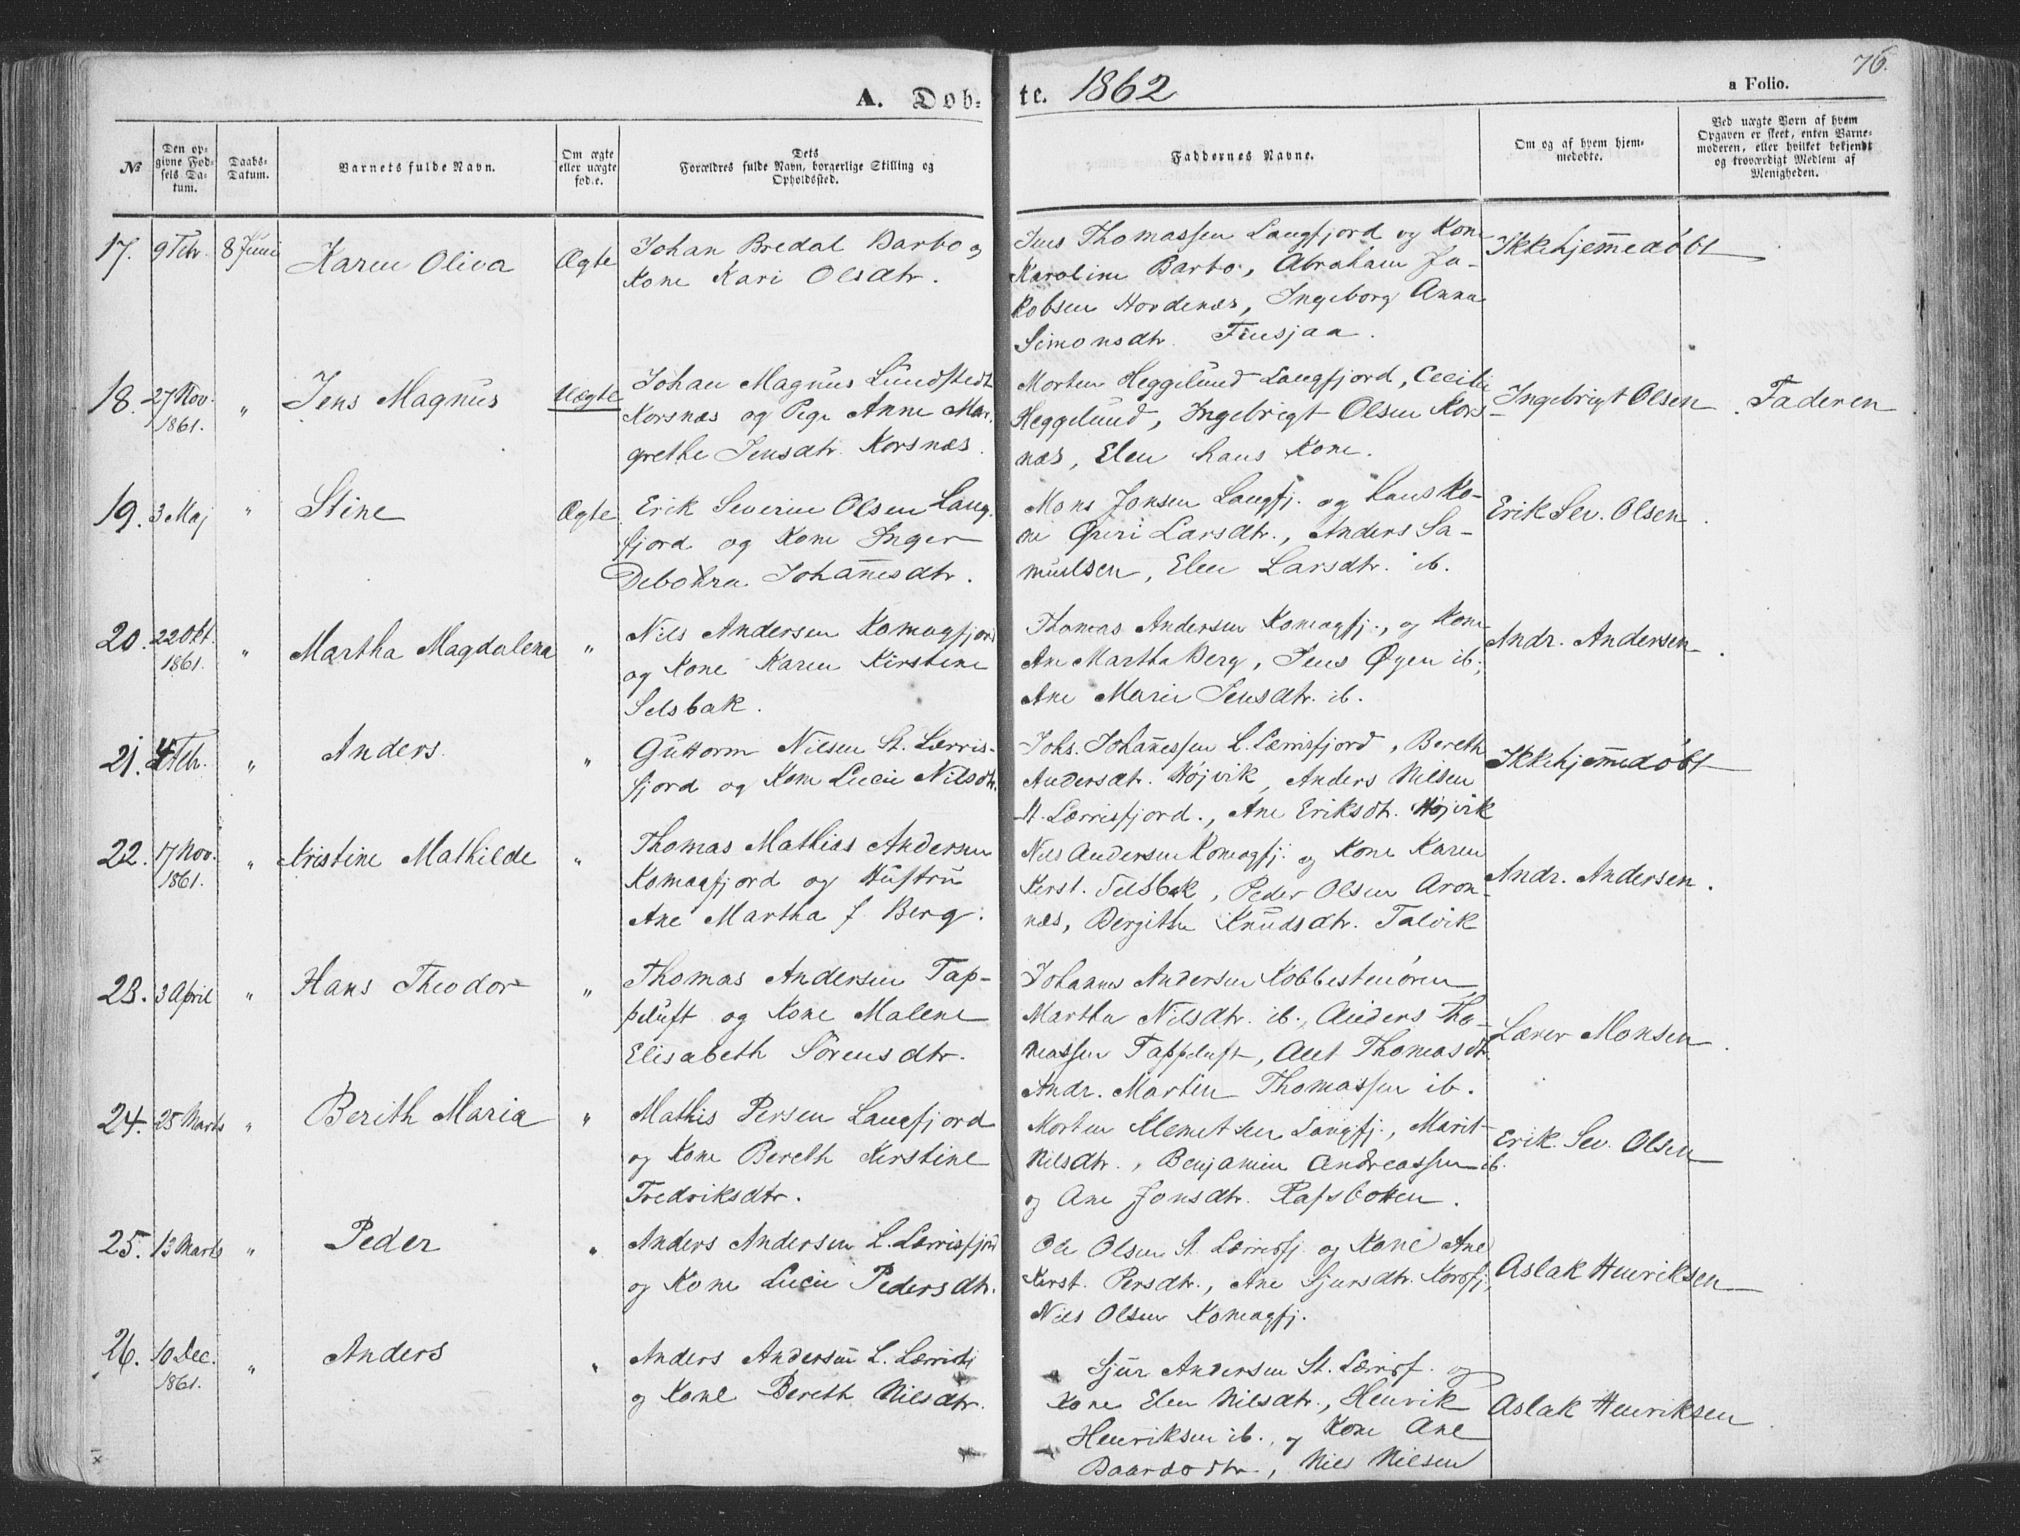 76.
A. Døb-
te. 1862
a Folio.
№
Den op-
givne Fød-
sels Da-
tum.
Daabs-
Datum.
Barnets fulde Navn.
Om ægte
eller uægte
født.
Dets
Forældres fulde Navn, borgerlige Stilling og
Opholdssted.
Faddernes Navne.
Om og af hvem hjem-
medøbte.
Ved uægte Børn af hvem
Opgaven er skeet, enten Barne-
moderen, eller hvilket bekjendt
og troværdigt Medlem af
Menigheden.
17. 9 Febr. 8 Juni Karen Oliva Ægte
Johan Bredal Barbo og
Kone Kari Olsdtr.
Jens Thomassen Langfjord og Kone
Karoline Barbo, Abraham Ja-
kobsen Nordenæs, Ingeborg Anna
Simonsdtr.
Ikkehjemmedøbt
18. 27 Nov. 1861. " Jens Magnus Uægte
Johan Magnus Lundstedt
Korsnæs og Pige Anne Mar-
grethe Jensdtr. Korsnæs.
Morten Heggelund Langfjord, Cecilie
Heggelund, Ingebrigt Olsen Kors-
næs, Elen hans Kone.
Ingebrigt Olsen
Faderen
19. 3 Maj " Stine Ægte
Erik Severin Olsen Lang-
fjord og Kone Inger
Debohra Johannesdtr.
Mons Jonsen Langfj. og hans Ko-
ne Larsdtr., Anders Sa-
muelsen, Elen Larsdtr. ib.
Erik Sev. Olsen.
20. 22 Okt. 1861. " Martha Magdalena "
Nils Andersen Komagfjord
og Kone Karen Kirstine
Selsbak.
Thomas Andersen Komagfj., og Kone
Ane Martha Berg, Jens Øyen ib.,
Ane Marie Jensdtr. ib.
Andr. Andersen.
21. 4 Febr. " Anders. "
Guttorm Nilsen St. Lerris-
fjord og Kone Lucie Nilsdtr.
Johs. Johannessen L. Lerrisfjord, Bereth
Andersdtr. Højvik, Anders Nilsen
St. Lerrisfjord., Ane Eriksdtr. Højvik
Ikkehjemmedøbt
22. 17 Nov. 1861. " Kristine Mathilde "
Thomas Mathias Andersen
Komagfjord og Hustru
Ane Martha f. Berg.
Nils Andersen Komagfj. og Kone Karen
Kirst. Selsbak, Peder Olsen Aron-
næs, Bergithe Knudsdtr. Talvik
Andr. Andersen.
23. 3 April " Hans Theodor "
Thomas Andersen Tap-
peluft og Kone Malene
Elisabeth Sørensdtr.
Johannes Andersen
Martha Nilsdtr. ib., Anders Tho-
massen Tappeluft, Thomasdtr.
Andr. Martin Thomassen ib.
Lærer Monsen.
24. 25 Marts " Berith Maria "
Mathis Persen Langfjord
og Kone Bereth Kirstine
Fredriksdtr.
Morten Klemetsen Langfj., Marit
Nilsdtr., Benjamin Andreassen ib.
og Ane Jonsdtr. Rafsbotten.
Erik Sev. Olsen
25. 13 Marts " Peder "
Anders Andersen L. Lerrisfjord
og Kone Lucie Pedersdtr.
Ole Olsen St. Lerrisfj. og Kone Ane
Kirst. Persdtr., Ane Sjursdtr. Korsfj.,
Nils Olsen Komagfj.
Aslak Henriksen
26. 10 Dec. 1861. " Anders "
Anders Andersen L. Lerrisfj
og Kone Bereth Nilsdtr.
Sjur Andersen St. Lerrisf. og
Kone Elen Nilsdtr., Henrik
Henriksen ib., og Kone Ane
Baardsdtr., Nils Nilsen
Aslak Henriksen